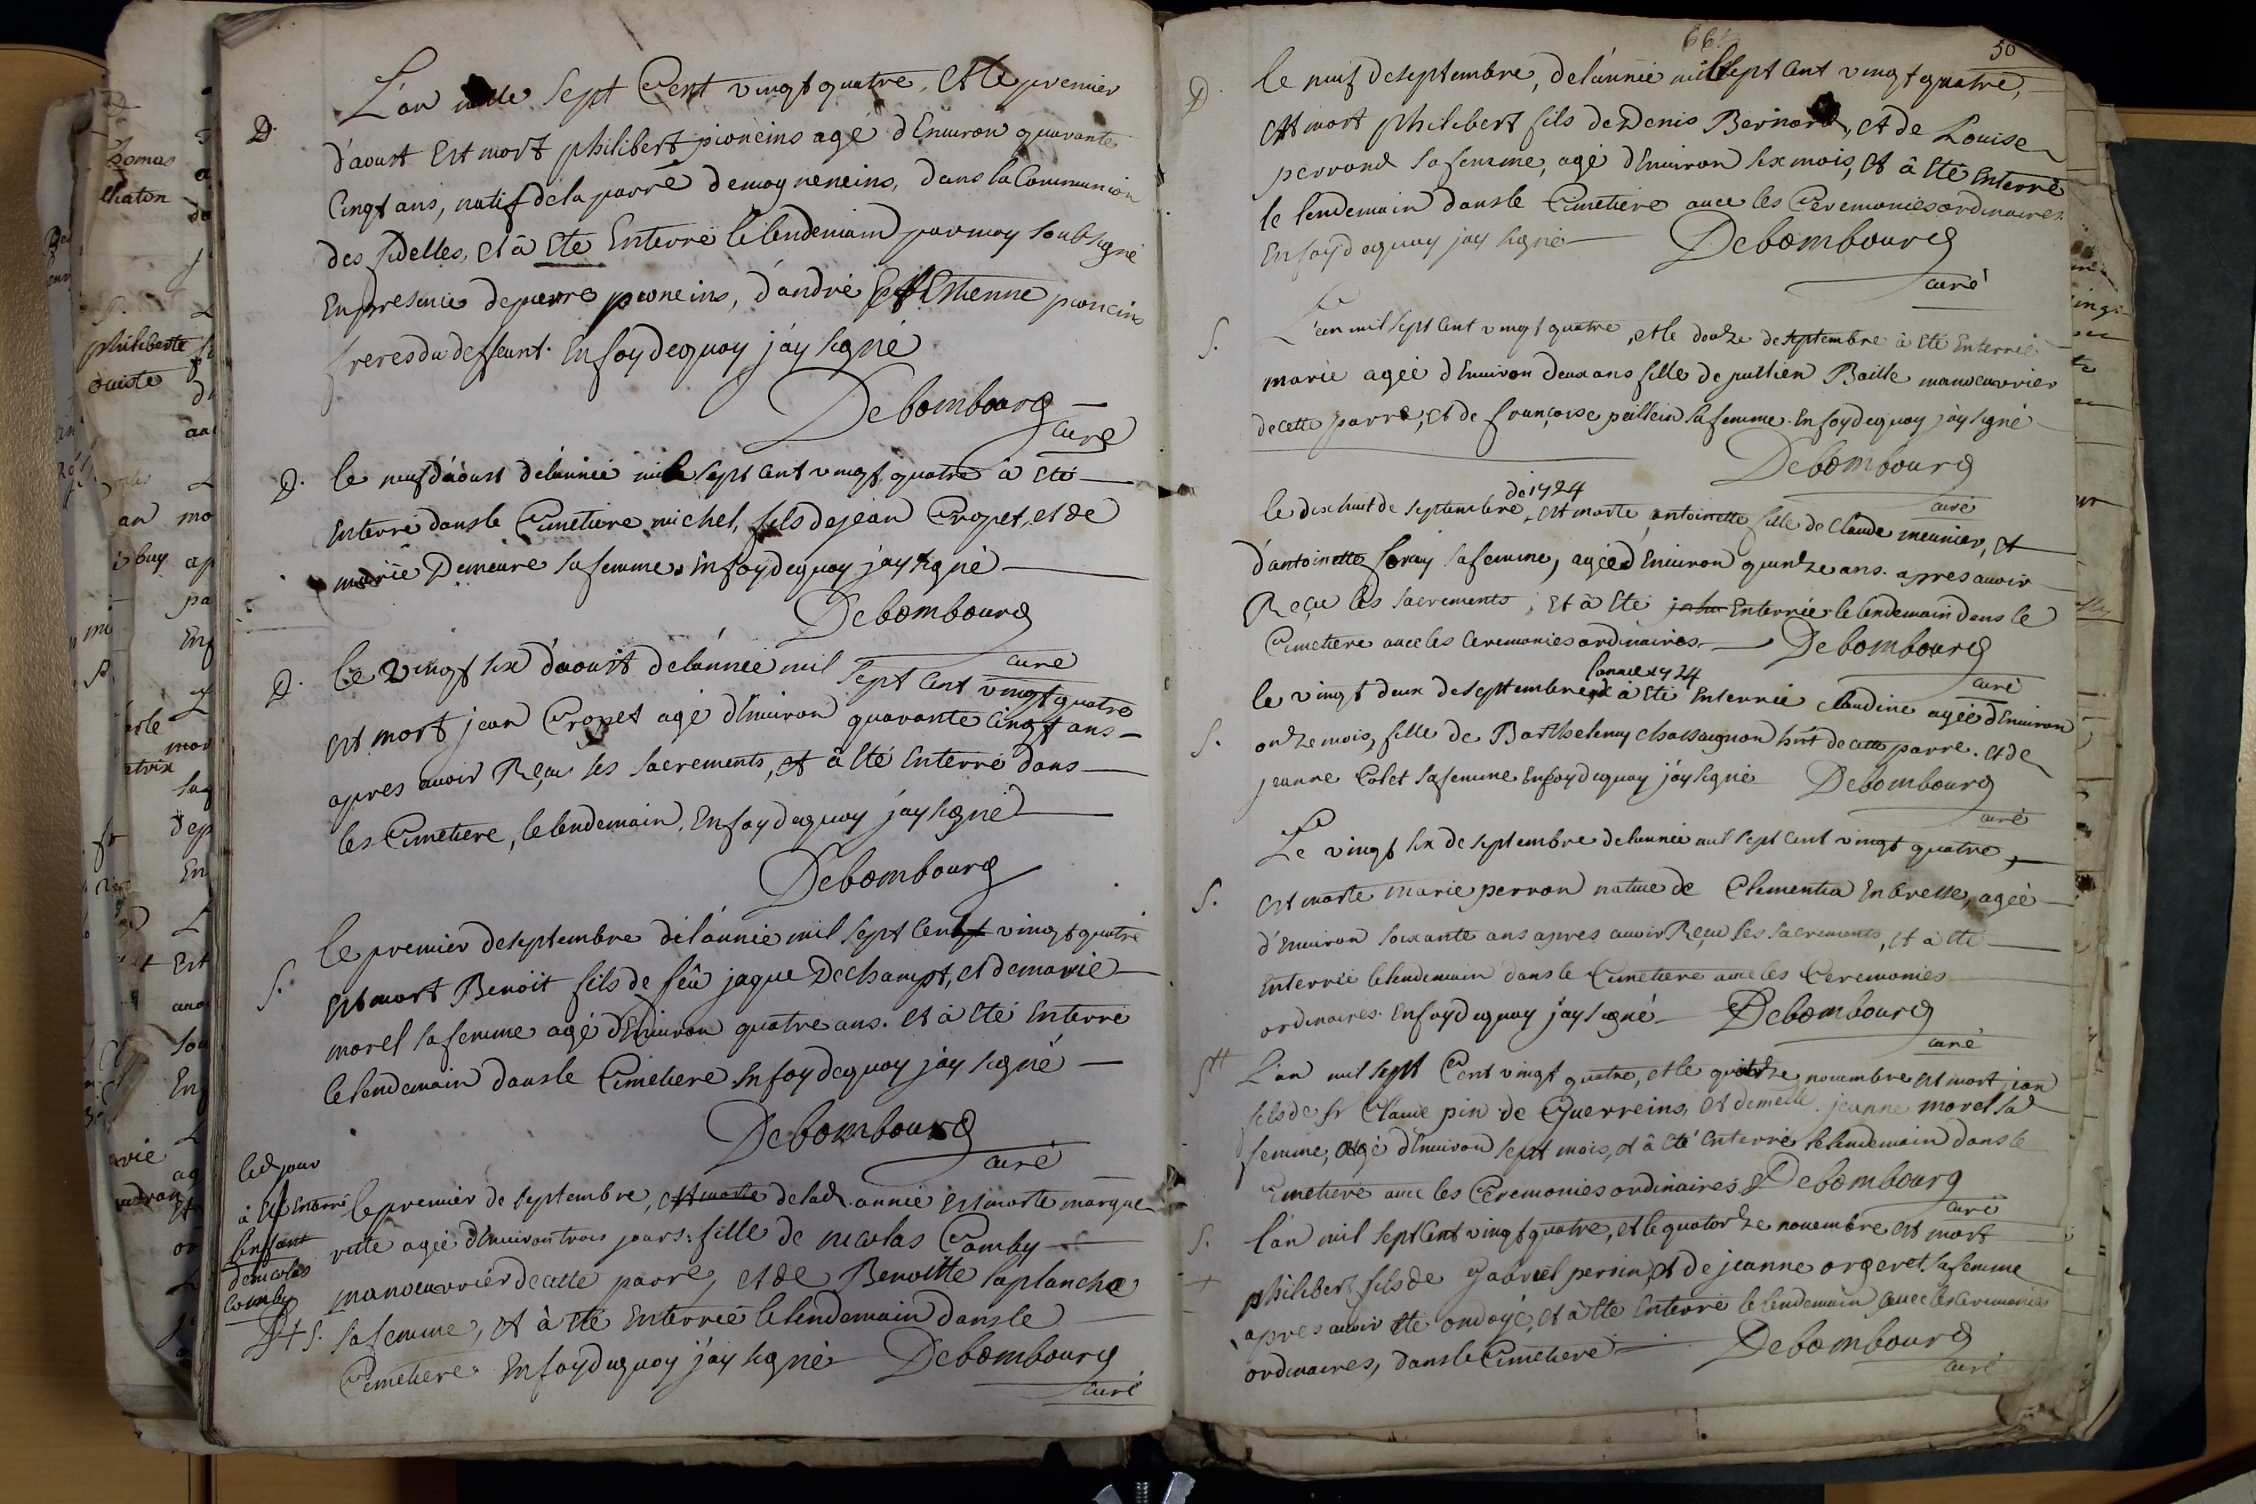 D.
L'an mille Sept Cent vingt quatre, Et le premier
d'aoust Est mort philibert pioneins agé d'Enuiron quarante
Cinqt ans, natif de la parre de mogneneins, dans la Communion
des fidelles, et à Eté Enterré le lendemain par moy soubsigné
En presence de pierre pioneins, d'andré Et Estienne pioneins
freres du deffeunt. En foy de quoy j'ay signé
Debombourg
curé
D.
le neuf d'aoust de l'année mil sept cent vingt quatre à Eté
Enterré dans le Cimetiere michel, fils de jean Cropet, et de
marie Demeure sa femme. En foy de quoy j'ay signé
Debombourg
curé
D.
le vingt six d'aoust de l'année mil sept cent vingt quatre
Est mort jean Cropet agé d'Enuiron quarante Cinqt ans
apres auoir Reçu les sacrements, et à Eté Enterré dans
les Cimetiere, le lendemain. En foy de quoy j'ay signé
Debombourg
S.
le premier de septembre de l'année mil sept cent vingt quatre
Est mort Benoit fils de feû jaque Dechampt, et de marie
morel sa femme agé d'Enuiron quatre ans. et à Eté Enterré
le lendemain dans le Cimetiere En foy de quoy j'ay signé
Debombourg
curé
led jour
à Eté Enterré
l'enfant
de nicolas
Comby
le premier de septembre, Est morte de lad. année Est morte margue
ritte agée d'Enuiron trois jours: fille de nicolas Comby
manoeuvrier de cette parre, et de Benoitte laplanche
sa femme, et à Eté Enterrée le lendemain dans le
Cimetiere En foy de quoy j'ay signé Debombourg
curé
50
D.
le neuf de septembre, de l'année mil sept cent vingt quatre,
Est mort philibert fils de Denis Bernard, et de Louise
perrond sa femme, agé d'Enuiron six mois, et à Eté Enterré
le lendemain dans le Cimetiere auec les Ceremonies ordinaires.
En foy de quoy j'ay signé Debombourg
curé
S.
L'an mil sept cent vingt quatre, et le douze de septembre à Eté Enterrée
marie agée d'Enuiron deux ans fille de Baille manoeuvrier
de cette parre, et de françoise sa femme. En foy de quoy j'ay signé
Debombourg
curé
de 1724
le dix huit de septembre, Est morte antoinette fille de Claude meunier, et
d'antoinette sa femme, agée d'Enuiron quinze ans. apres auoir
Reçu les sacrements, et à Eté Enterrée le lendemain dans le
Cimetiere auec les Ceremonies ordinaires. Debombourg
curé
l'annee 1724
S.
le vingt deux de septembre à Eté Enterrée Claudine agée d'Enuiron
onze mois, fille de Barthelemy chassaignon de cette parre. et de
jeanne Colet sa femme En foy de quoy j'ay signé Debombourg
curé
S.
Le vingt six de septembre de l'année mil sept cent vingt quatre,
Est morte marie perron natiue de Clementia En bresse, agée
d'Enuiron soixante ans apres auoir Reçu les sacrements, et à Eté
Enterrée le lendemain dans le Cimetiere auec les Ceremonies
ordinaires. En foy de quoy j'ay signé Debombourg
curé
L'an mil sept Cent vingt quatre, et le novembre est mort jean
fils de sr Claude pin de Guerreins, et de jeanne morel sa
femme, agé d'Enuiron sept mois, et à Eté Enterré le lendemain dans le
Cimetiere auec les Ceremonies ordinaires Debombourg
curé
S.
l'an mil sept cent vingt quatre, et le quatorze novembre est mort
philibert fils de Gabriel persin, et de jeanne orgeret sa femme
apres auoir eté ondoyé, et à Eté Enterré le lendemain auec les Ceremonies
ordinaires, dans le Cimetiere Debombourg
curé